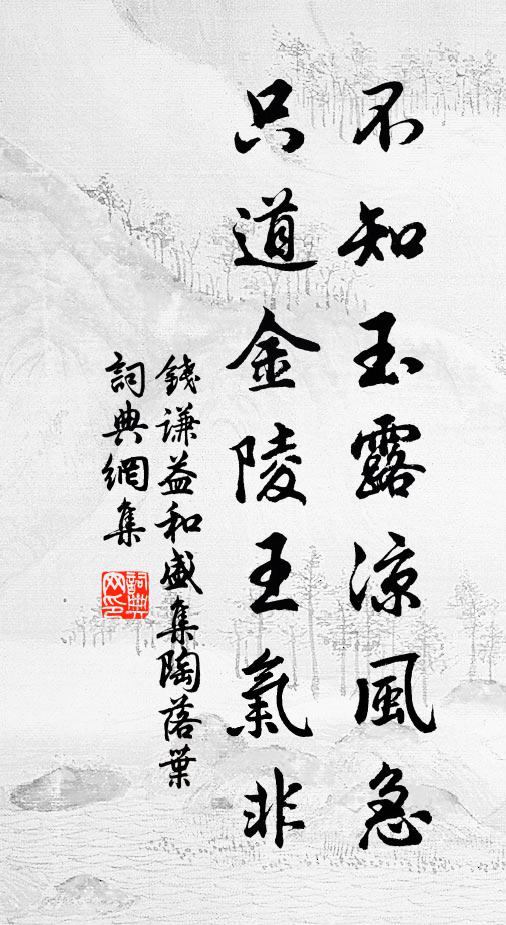 不知玉露凉風急
只道金陵王氣非
錢谦益和盛集陶落葉
詞典網集
詞典网印